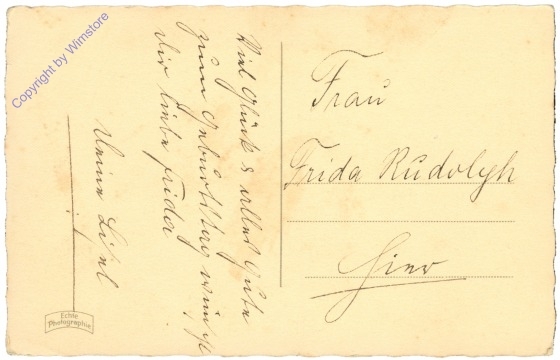 Viel Glück & alles Gute
zum Geburtstag wünscht
dir liebe Frida
deine Lisel
Frau
Frida Rudolph
Hier
Echte
Photographie
Copyright by Wimstore